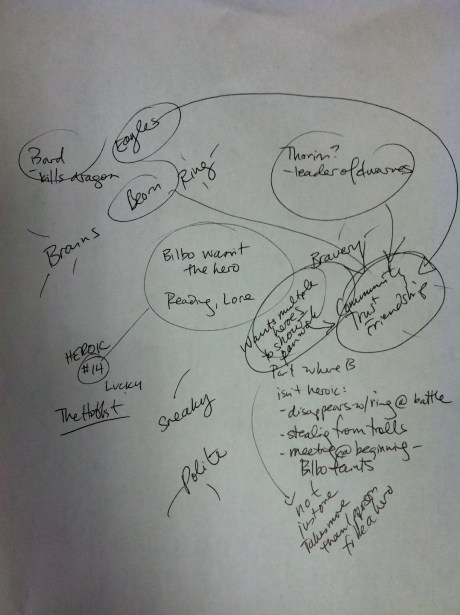 Eagles
Bard
-kills dragon
Beorn
Ring
Thorin?
-leader of dwarves
Brains
Bilbo wasn't
the hero
Reading, Lore
Bravery
Wants multiple
heroes
to show
Community
Trust
Friendship
HEROIC
#14
Lucky
The Hobbit
Sneaky
Polite
Part where B
isn't heroic:
-disappears w/ring @ battle
-stealing from trolls
-meeting @ beginning-
Bilbo faints
not
just one
Takes more
than 1 person
a hero